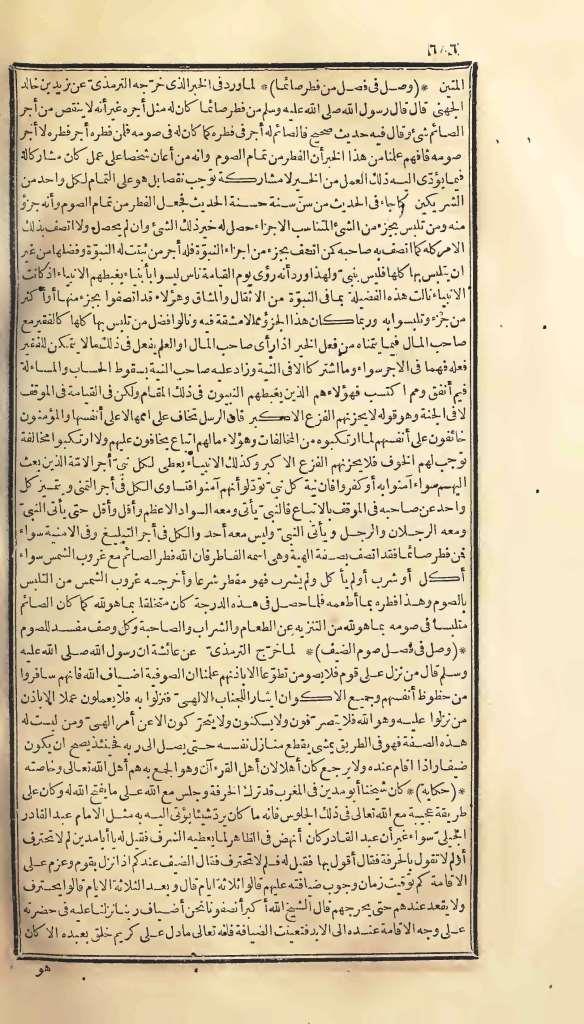 ٦٠٦
المتين *(وصل فى فصل من فطر صائما)* لما ورد فى الخبر الذى خرّجه الترمذىّ عن زيد بن خالد
الجهنى قال قال رسول الله صلى الله عليه وسلم من فطر صائما كان له مثل أجره غير أنه لا ينقص من أجر
الصائم شئ وقال فيه حديث صحيح فالصائم له أجر فى فطره كما كان له فى صومه فلمن فطره أجر فطره لا أجر
صومه فافهم علمنا من هذا الخبر أن الفطر من تمام الصوم وانه من أعان شخصا على عمل كان مشاركا له
فيما يؤدّى اليه ذلك العمل من الخير لا مشاركة توجب نقصا بل هو على التمام لكل واحد من
الشريكين كما جاء فى الحديث من سنّ سنة حسنة الحديث فجعل الفطر من تمام الصوم وأنه جزؤ
منه ومن تلبس بجزء من الشئ المتناسب الاجزاء حصل له خير ذلك الشئ وان لم يحصل ولا اتصف بذلك
الامر كله كما اتصف به صاحبه كمن اتصف بجزء من اجزاء النبوّة فله أجر من ثبتت له النبوّة وفضلها من غير
ان يتلبس بها كلها فليس بنبىّ ولهذا ورد أنه رؤى يوم القيامة ناس ليسوا بأنبياء يغبطهم الانبياء اذ كانت
الانبياء نالت هذه الفضيلة بما فى النبوّة من الاثقال والمشاق وهؤلاء قد اتصفوا بجزء منها أو أكثر
من جزء وتلبسوا به وربما كان هذا الجزؤ مما لا مشقة فيه ونالوا فضل من تلبس بها كلها كالفقير مع
صاحب المال فيما يتمناه من فعل الخير اذا رأى صاحب المال أو العلم يفعل فى ذلك مالا يتمكن للفقير
فعله فهما فى الاجر سواء وما اشتركا الا فى النية وزاد عليه صاحب النية بسقوط الحساب والمساءلة
فيم أنفق ومم اكتسب فهؤلاء هم الذين يغبطهم النبيون فى ذلك المقام ولكن فى القيامة فى الموقف
لا فى الجنة وهو قوله لا يحزنهم الفزع الاكبر فان الرسل تخاف على اممها لا على أنفسها والمؤمنون
خائفون على أنفسهم لما ارتكبوه من المخالفات وهؤلاء ما لهم اتباع يخافون عليهم ولا ارتكبوا مخالفة
توجب لهم الخوف فلا يحزنهم الفزع الاكبر وكذلك الانبياء يعطى لكل نبىّ أجر الامّة الذين بعث
اليهم سواء آمنوا به أو كفروا فان نية كل نبىّ تودّ لو أنهم آمنوا فتساوى الكل فى أجر التمنى ويتميز كل
واحد عن صاحبه فى الموقف بالاتباع فالنبىّ يأتى ومعه السواد الاعظم وأقل وأقل حتى يأتى النبىّ
ومعه الرجلان والرجل ويأتى النبىّ وليس معه أحد والكل فى أجر التبليغ وفى الامنية سواء
فمن فطر صائما فقد اتصف بصفة الهية وهى اسمه الفاطر فان الله فطر الصائم مع غروب الشمس سواء
أكل أو شرب أو لم يأكل ولم يشرب فهو مفطر شرعا وأخرجه غروب الشمس من التلبس
بالصوم وهذا فطره بما أطعمه فلما حصل فى هذه الدرجة كان متخلقا بما هو لله كما كان الصائم
متلبسا فى صومه بما هو لله من التنزيه عن الطعام والشراب والصاحبة وكل وصف مفسد للصوم
*(وصل فى فصل صوم الضيف)* لما خرّج الترمذىّ عن عائشة ان رسول الله صلى الله عليه
وسلم قال من نزل على قوم فلا يصومن تطوّعا الا باذنهم علمنا ان الصوفية اضياف الله فانهم سافروا
من حظوظ أنفسهم وجميع الاكوان ايثارا للجناب الالهى فنزلوا به فلا يعملون عملا الا باذن
من نزلوا عليه وهو الله فلا يتصرّفون ولا يسكنون ولا يتحرّكون الا عن أمر الهىّ ومن ليست له
هذه الصفة فهو فى الطريق يمشى يقطع منازل نفسه حتى يصل الى ربه فحينئذ يصح ان يكون
ضيفا واذا اقام عنده ولا يرجع كان أهلا لان أهل القرءآن وهو الجمع به هم أهل الله تعالى وخاصته
*(حكاية)* كان شيخنا أبو مدين فى المغرب قد ترك الحرفة وجلس مع الله على ما يفتح الله له وكان على
طريقة عجيبة مع الله تعالى فى ذلك الجلوس فانه ما كان يردّ شيئا يؤتى اليه به مثل الامام عبد القادر
الجيلى سواء غير أن عبد القادر كان أنهض فى الظاهر لما يعطيه الشرف فقيل له يا أبا مدين لم لا تحترف
أو لم لا تقول بالحرفة فقال أقول بها فقيل له فلم لا تحترف فقال الضيف عندكم اذا نزل بقوم وعزم على
الاقامة كم توقيت زمان وجوب ضيافته عليهم قالوا ثلاثة ايام قال وبعد الثلاثة الايام قالوا يحترف
ولا يقعد عندهم حتى يحرجهم قال الشيخ الله أكبر أنصفونا نحن أضياف ربنا نزلنا عليه فى حضرته
على وجه الاقامة عنده الى الابد فتعينت الضيافة فانه تعالى ما دل على كريم خلق بعبده الا كان
هو